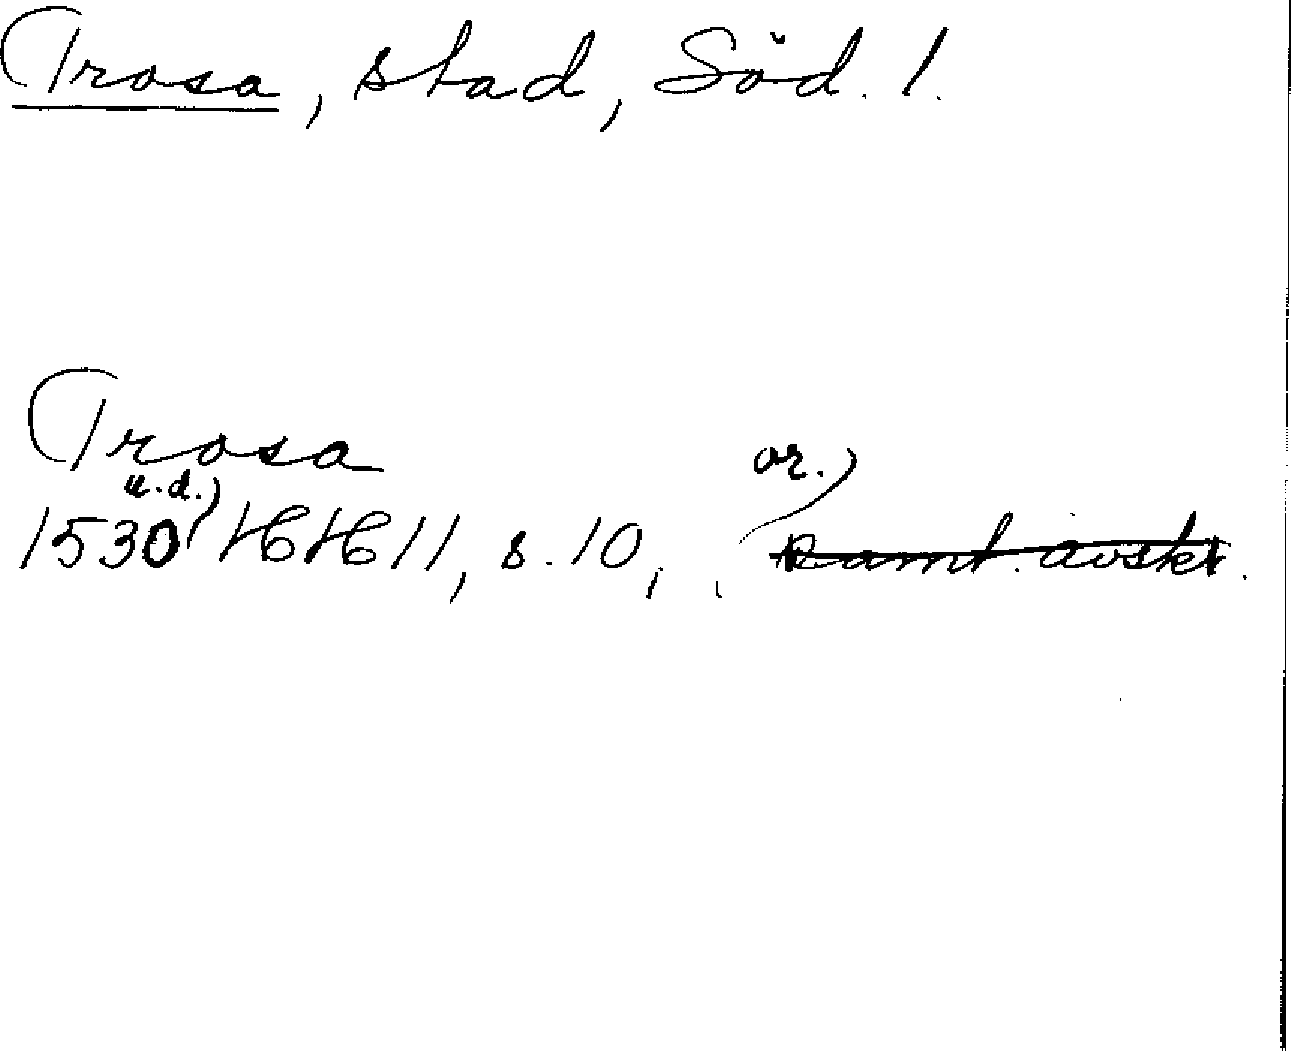 Trosa, stad, Söd. l.
Trosa
1530 u.d.) HH 11, s. 10, or.) samt. avskr.